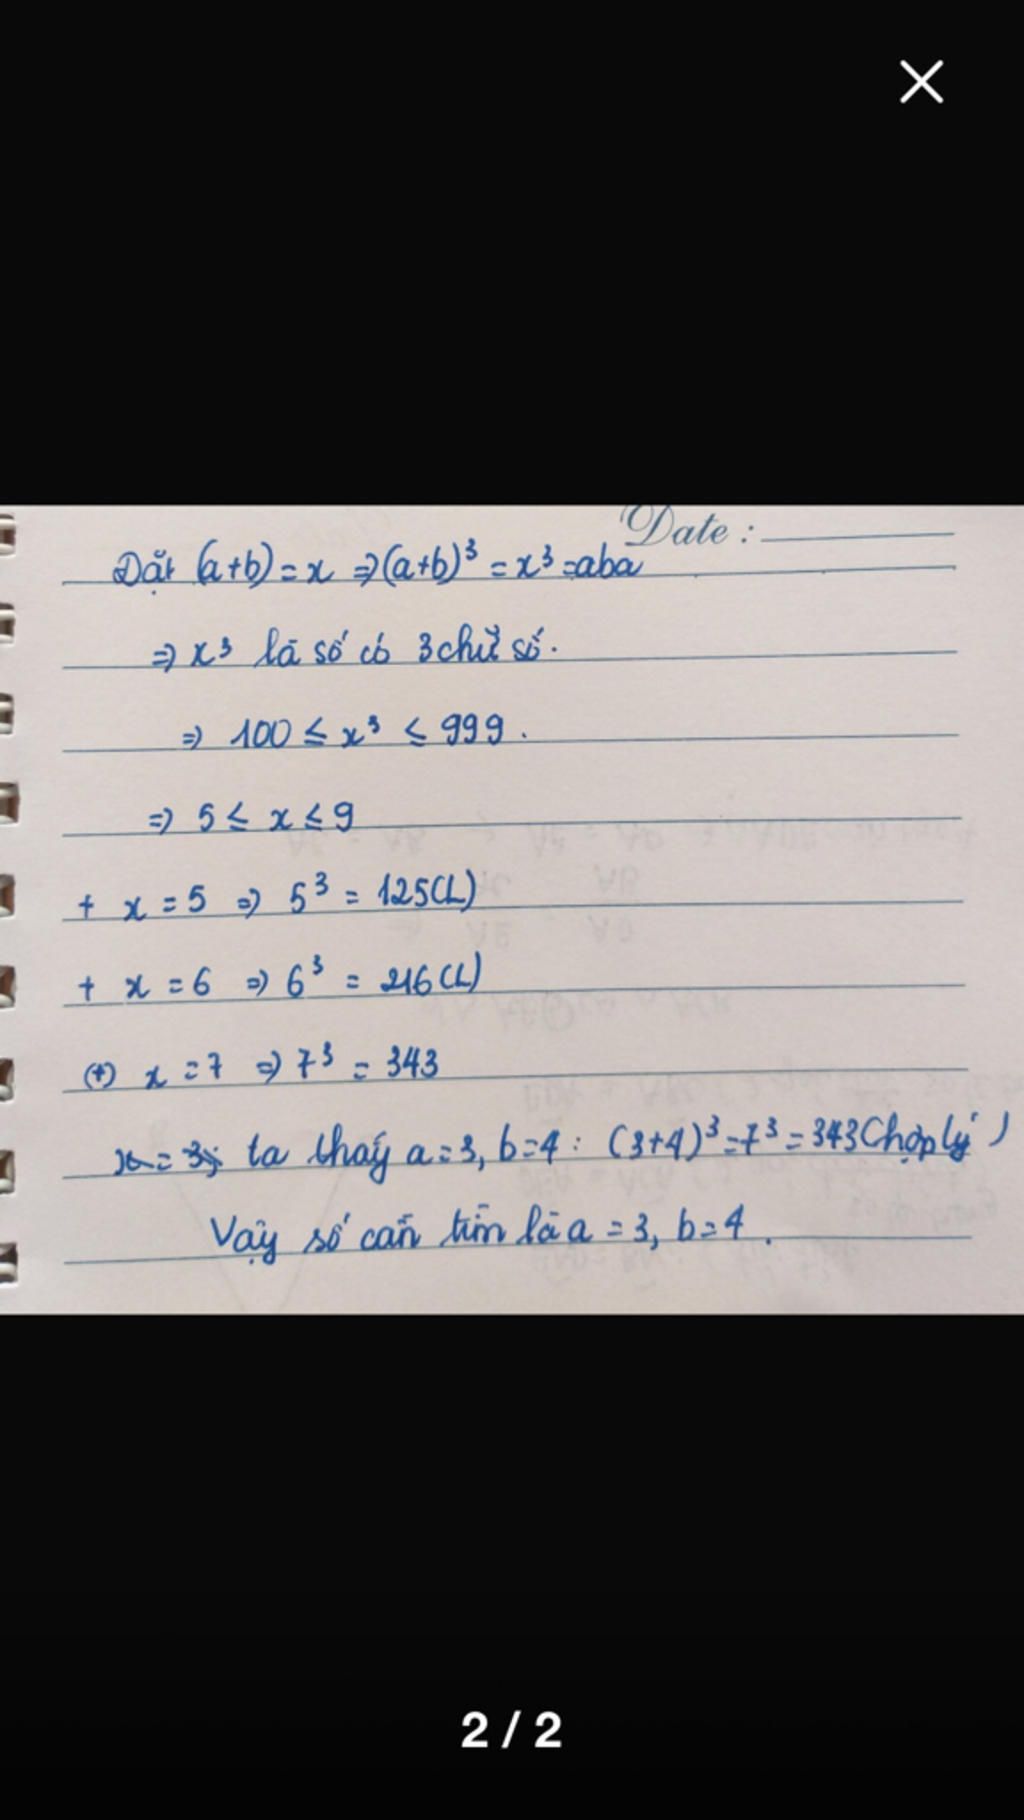 Date :
Đặt (a+b) = x ⇒ (a+b)³ = x³ = aba
⇒ x³ là số có 3 chữ số.
⇒ 100 ≤ x³ ≤ 999.
⇒ 5 ≤ x ≤ 9
+ x = 5 ⇒ 5³ = 125 (L)
+ x = 6 ⇒ 6³ = 216 (L)
(+) x = 7 ⇒ 7³ = 343
ta thấy a = 3, b = 4 : (3+4)³ = 7³ = 343 (hợp lý)
Vậy số cần tìm là a = 3, b = 4.
2 / 2